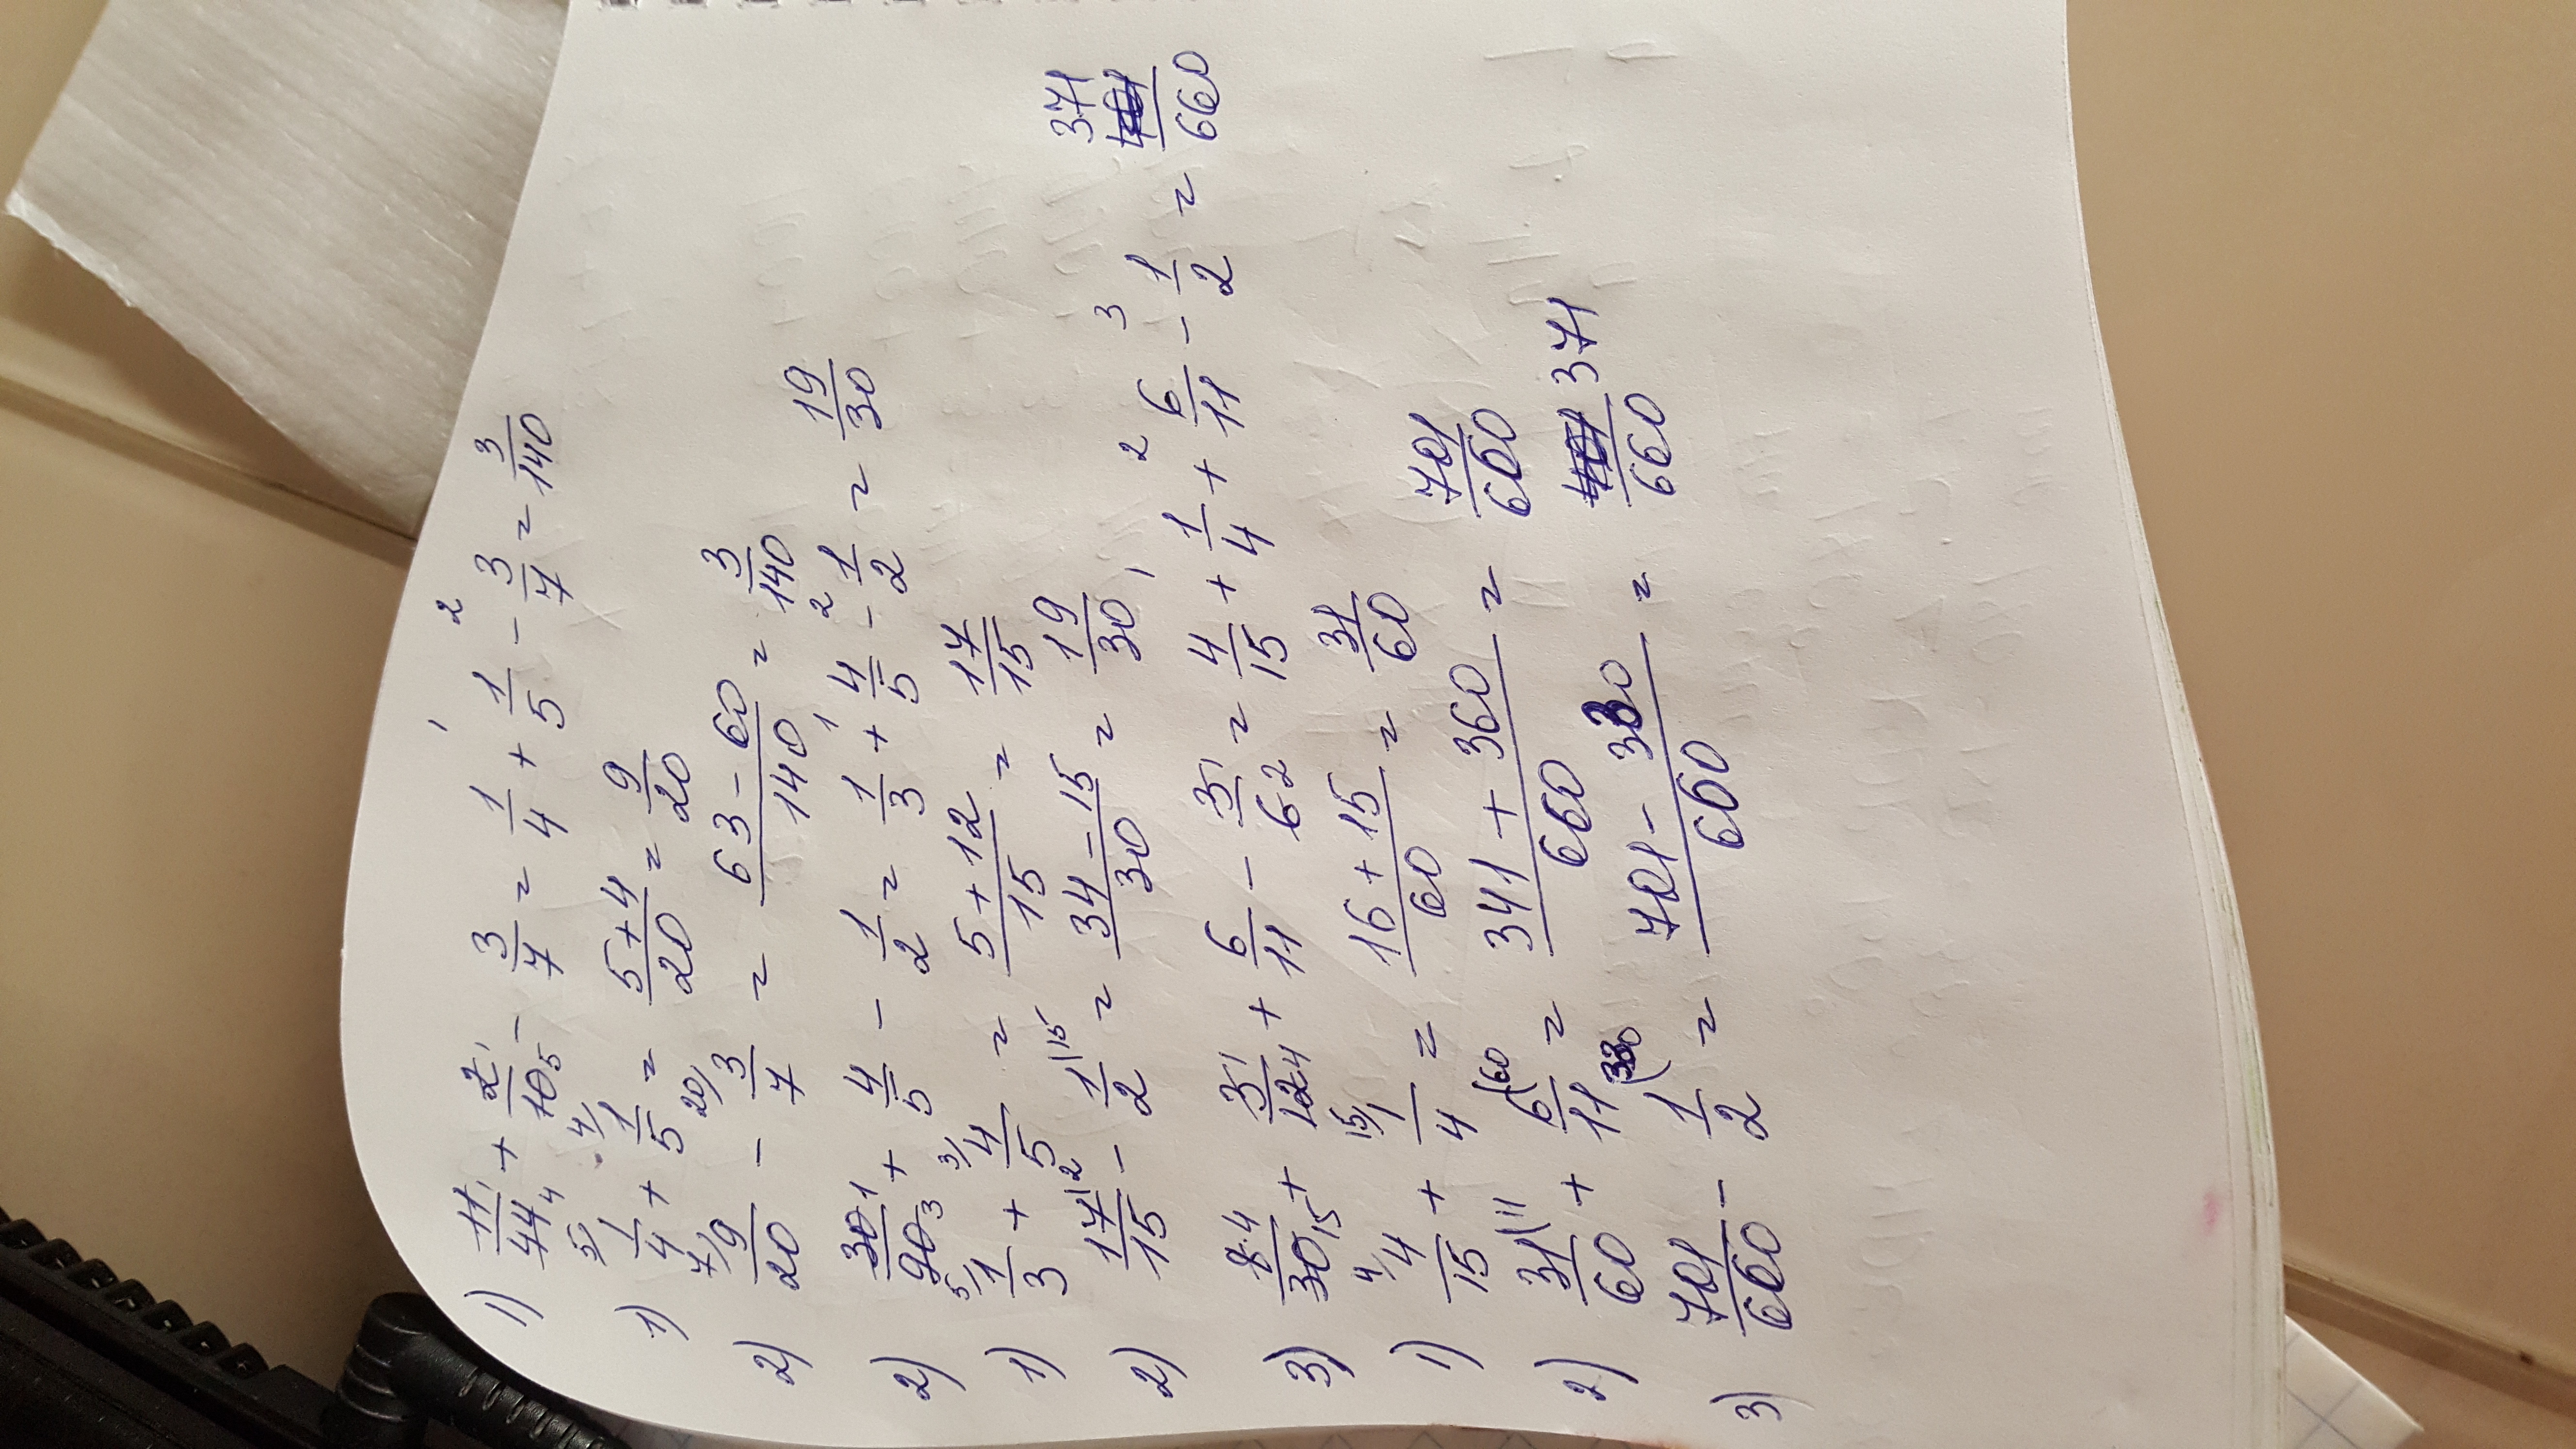 1) 11/44 + 2/10 - 3/7 = 1/4 + 1/5 - 3/7 = 3/140
1) 1/4 + 1/5 = (5+4)/20 = 9/20
2) 9/20 - 3/7 = (63-60)/140 = 3/140
2) 30/90 + 4/5 - 1/2 = 1/3 + 4/5 - 1/2 = 19/30
1) 1/3 + 4/5 = (5+12)/15 = 17/15
2) 17/15 - 1/2 = (34-15)/30 = 19/30
3) 8/30 + 3/12 + 6/11 - 3/6 = 4/15 + 1/4 + 6/11 - 1/2 = 371/660
1) 4/15 + 1/4 = (16+15)/60 = 31/60
2) 31/60 + 6/11 = (341+360)/660 = 701/660
3) 701/660 - 1/2 = (701-330)/660 = 371/660